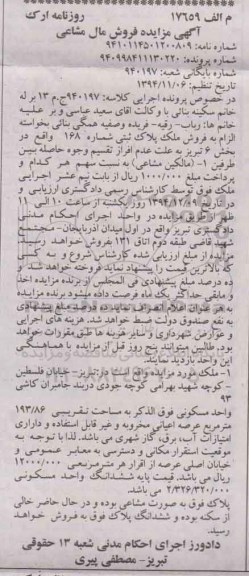 م الف ۱۷۶۵۹ روزنامه ارک
آگهی مزایده فروش مال مشاعی
شماره نامه: ۹۴۱۰۱۱۴۵۰۱۲۰۰۸۰۹
شماره پرونده: ۹۴۰۹۹۸۴۱۱۱۳۰۲۲۰
شماره بایگانی شعبه: ۹۴۰۱۹۷
تاریخ تنظیم: ۱۳۹۴/۱۱/۰۶
در خصوص پرونده اجرایی کلاسه: ۹۴۰۱۹۷ج م ۱۳ بر له
خانم سکینه بنائی با وکالت آقای سعید عباسی و بر علیه
خانم ها: رباب- رقیه- فریده وصفیه همگی بنائی بخواسته
الزام به فروش ملک پلاک ثبتی شماره ۱۶۸ واقع در
بخش ۶ تبریز به علت عدم افراز تقسیم وجوه حاصله بین
طرفین ۱- (مالکین مشاعی) به نسبت سهم هر کدام و
پرداخت مبلغ ۱۰۰۰/۰۰۰ ریال از بابت نیم عشر اجرایی
ملک فوق توسط کارشناس رسمی دادگستری ارزیابی و
در تاریخ ۱۳۹۴/۱۲/۰۹ روز یکشنبه از ساعت ۱۰ الی ۱۱
ظهر از طریق مزایده در واحد اجرای احکام مدنی
دادگستری تبریز واقع در اول میدان آذربایجان- مجتمع
شهید قاضی طبقه دوم اتاق ۱۳۱ بفروش خواهد رسید.
مزایده از مبلغ ارزیابی شده کارشناس شروع و به کسی
که بالاترین قیمت را پیشنهاد نماید فروخته خواهد شد و
ده درصد مبلغ پیشنهادی فی المجلس از برنده مزایده اخذ
و مابقی حداکثر یک ماه فرصت داده میشود برنده مزایده
به هر عنوان اعلام انصراف نماید ده درصد مبلغ پیشنهادی
به نفع صندوق دولت ضبط خواهد شد. هزینه های اجرایی
و عوارض شهرداری و سایر هزینه ها طبق مقررات خواهد
بود. طالبین میتوانند پنج روز قبل از مزایده با هماهنگی
این واحد بازدید نمایند.
۱- ملک مورد مزایده واقع است در: تبریز- خیابان فلسطین
- کوچه شهید بهرامی کوچه جودی دربند جامبران کاشی
۹۳
واحد مسکونی فوق الذکر به مساحت تقریبی ۱۹۳/۸۶
مترمربع عرصه اعیانی مخروبه و غیر قابل استفاده و دارای
امتیازات آب، برق، گاز شهری می باشد. لذا با توجه به
موقعیت استقرار مکانی و دسترسی به معابر عمومی و
خیابان اصلی عرصه از قرار هر مترمربعی ۱۲۰۰۰/۰۰۰
ریال می باشد. قیمت پایه ششدانگ واحد مسکونی
۲/۳۲۶/۳۲۰/۰۰۰ می باشد
پلاک فوق به صورت مشاعی بوده و در حال حاضر خالی
از سکنه بوده و ششدانگ پلاک فوق به فروش خواهد
رسید.
دادورز اجرای احکام مدنی شعبه ۱۳ حقوقی
تبریز- مصطفی پیری